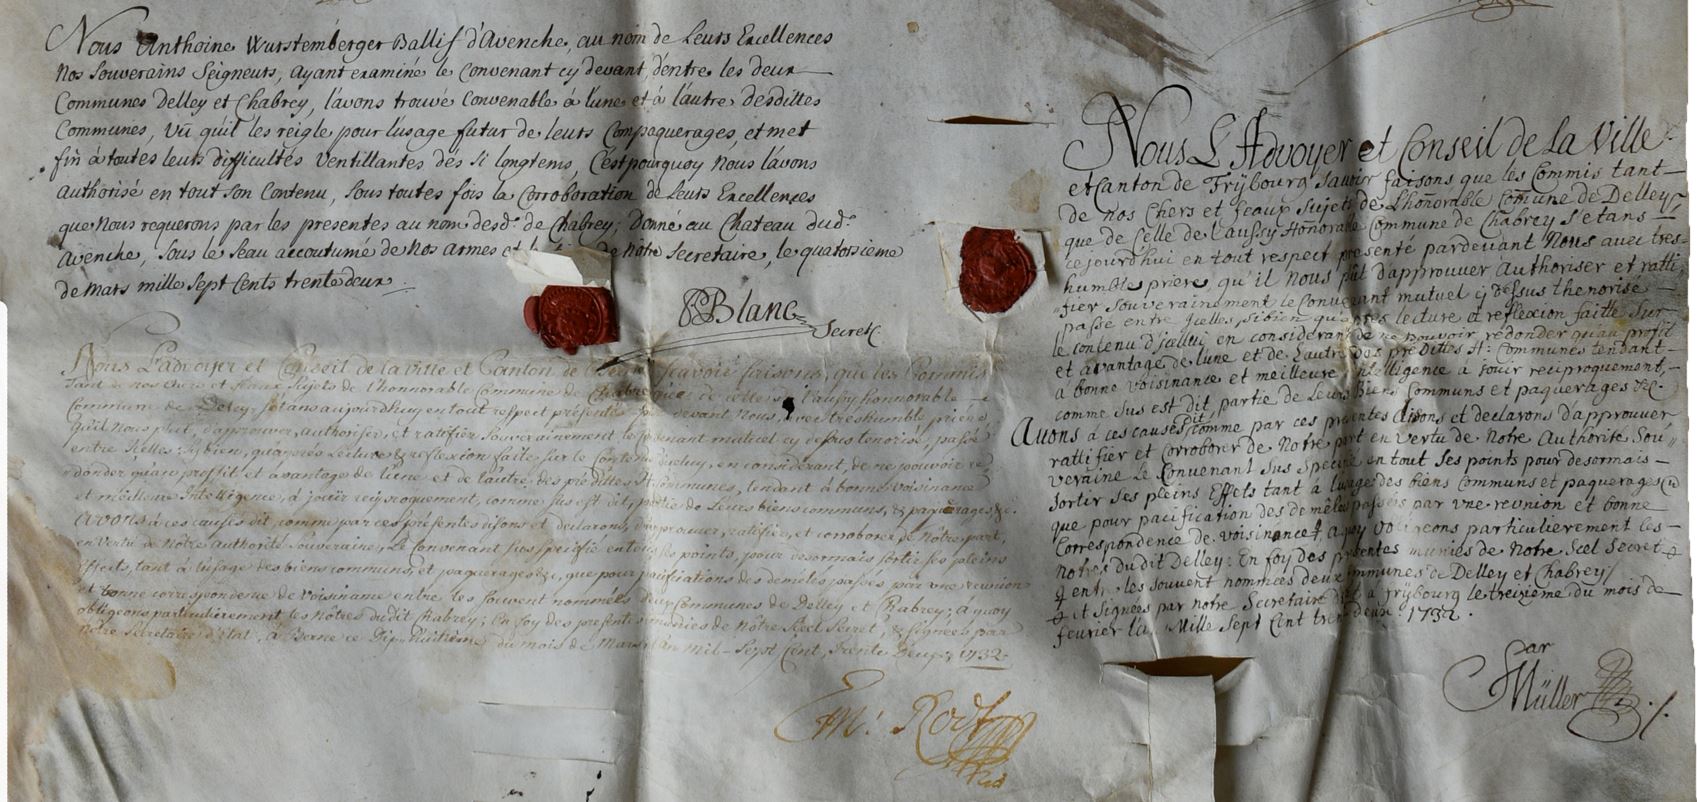 Nous Anthoine Wurstemberger Ballif d'Avenche, au nom de Leurs Excellences
Nos Souverains Seigneurs, ayant examiné le Convenant cy devant, d'entre les deux
Communes Delley et Chabrey, l'avons trouvé Convenable à l'une et à l'autre desdittes
Communes, vû qu'il les reigle pour l'usage futur de leurs Compaquerages, et met
fin à toutes leurs difficultés Ventillantes dés Si longtems, C'est pourquoy Nous l'avons
authorisé en tout son Contenu, Sous toutes fois la Corroboration de Leurs Excellences
que Nous requerons par les presentes au nom desd.s de Chabrey; Donné au Chateau dud.t
Avenche, Sous le Seau accoutumé de Nos armes et de Notre Secretaire, le quatorzieme
de Mars mille Sept Cents trente deux.
Blanc
Secret.
Nous L'advoyer et Conseil de la Ville et Canton de Berne, Sçavoir faisons, que les Commis
Tant de nos chers et feaux Sujets de l'honnorable Commune de Chabrey que de celle de l'aussy honnorable
Commune de Delley, s'étans aujourdhuy en tout respect présentés par devant Nous, avec treshumble priere,
qu'il Nous plût, d'approuver, authoriser, et ratifier Souverainement le Convenant mutuel cy dessus tenorisé, passé
entre Icelles; Si bien, qu'aprés Lecture & reflexion faite sur le Contenu d'iceluy, en considérant, de ne pouvoir ré-
donder qu'au proffit et avantage de l'une et de l'autre, des prédittes H. Communes, tendant à bonne voisinance
et meilleure Intelligence, à joüir reciproquement, comme sus est dit, partie de Leurs biens communs, & paquerages &c.
Avons à ces causes dit, comme par ces présentes disons et declarons, d'approuver, ratifier, et corroborer de Nôtre part,
en Vertu de Nôtre authorité Souveraine, Le Convenant sus specifié en tous ses points, pour desormais sortir ses pleins
Effects, tant à l'usage des biens communs, et paquerages &c, que pour pacifications des démelés passés par une reunion
et bonne correspondence de Voisinance entre les souvent nommées deux Communes de Delley et Chabrey; à quoy
obligeons particulièrement les Nôtres dudit Chabrey; En foy des presentes munies de Nôtre Scel Secret, & Signées par
Nôtre Secretaire d'Etat, à Berne ce Dix-Huitième du mois de Mars l'an Mil-Sept Cent, Trente Deux. 1732.
Em. Rodt
Nous L'Advoyer et Conseil de la Ville
et Canton de Frÿbourg Savoir faisons que les Commis tant
de nos Chers et feaux Sujets de L'honorable Comune de Delley
que de Celle de l'aussy Honorable Commune de Chabrey S'etans
cejourd'hui en tout respect presenté pardevant Nous avec tres-
humbles prieres qu'il Nous plût d'approuver Authoriser et ratti-
fier Souverainement le Convenant mutuel cÿ dessus thenorisé
passé entre Jcelles, si bien qu'apres lecture et reflexion faitte Sur
le contenu d'Jcelluy en considerant de ne pouvoir rédonder qu'au profit
et avantage de l'une et de L'autre des predittes H: Communes tendant
à bonne voisinance et meilleure Intelligence à joüir reciproquement,
comme Sus est dit, partie de Leurs biens Communs et paquerages &c.
Avons à ces causes dit, comme par ces presentes disons et declarons d'approuver
rattifier et Corroborer de Notre part en vertu de Notre Authorité Sou-
veraine Le Convenant Sus Specifié en tout Ses points pour desormais
Sortir Ses pleins Effets tant à l'usage des biens Communs et paquerages &c
que pour pacification des démêles passés par vne reunion et bonne
Correspondence de voisinance ⧧ a quoy obligeons particulierement les
Notres dudit Delley: En foy des presentes munies de Notre Scel Secret
⧧ entre les souvent nommées deux Communes de Delley et Chabrey/
et Signées par notre Secretaire d'Etat à Frÿbourg le treizieme du mois de
fevrier l'an Mille Sept Cent trente deux. 1732.
Par
Müller